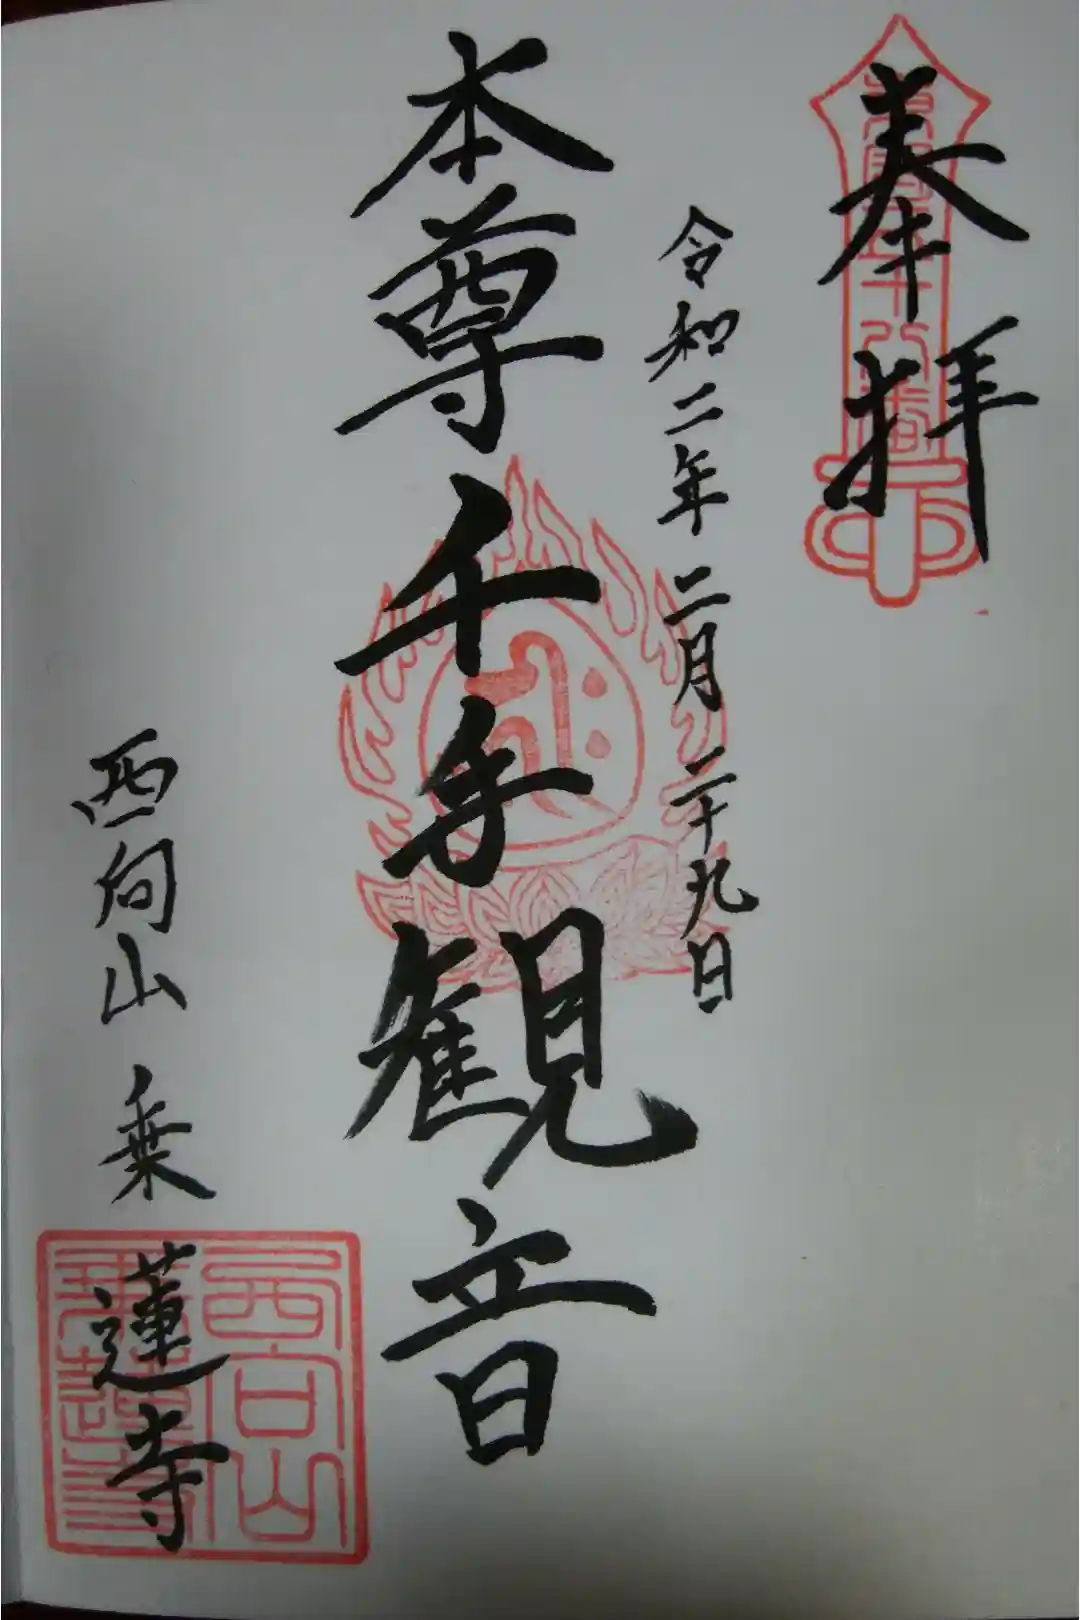 奉拝
令和二年二月二十九日
本尊千手観音
西向山乗蓮寺
西向山
乗蓮寺